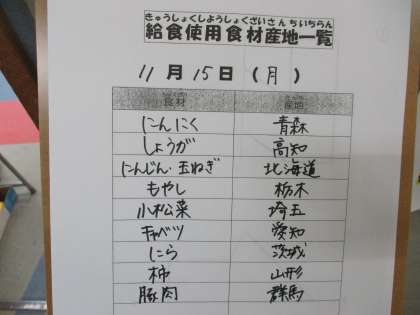 きゅうしょくしようしょくざいさんちいちらん
給食使用食材産地一覧
11月15日(月)
食材 産地
にんにく 青森
しょうが 高知
にんじん・玉ねぎ 北海道
もやし 栃木
小松菜 埼玉
キャベツ 愛知
にら 茨城
柿 山形
豚肉 群馬